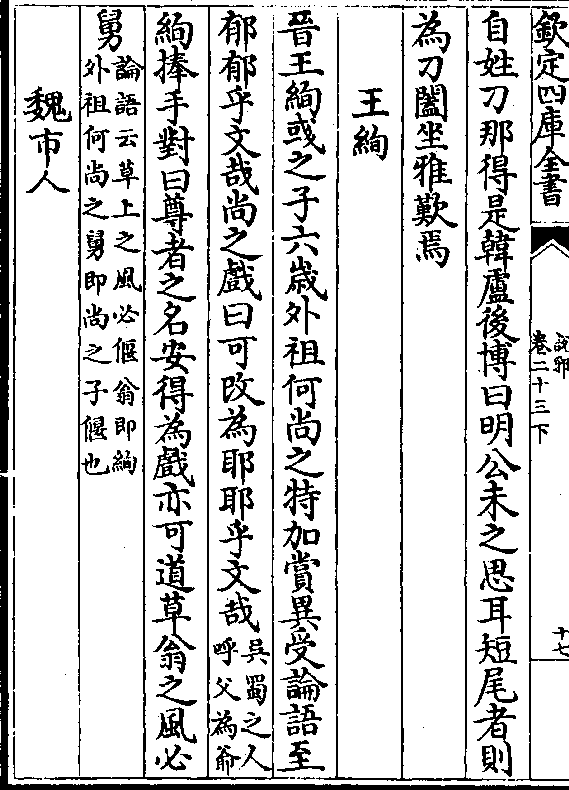 欽定四庫全書
說郛
卷二十三下
十七
自姓刀那得是韓盧後博曰明公未之思耳短尾者則
為刀闔坐雅歎焉
王絢
晉王絢彧之子六歲外祖何尚之特加賞異受論語至
郁郁乎文哉尚之戲曰可改為耶耶乎文哉
吳蜀之人
呼父為爺
絢捧手對曰尊者之名安得為戲亦可道草翁之風必
舅
論語云草上之風必偃翁即絢
外祖何尚之舅即尚之子偃也
魏市人